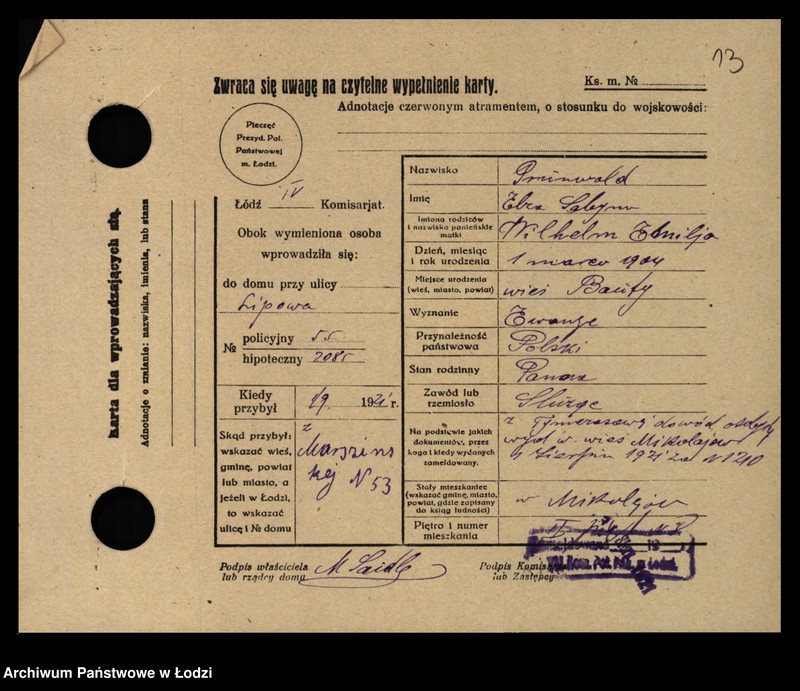 13
Zwraca się uwagę na czytelne wypełnienie karty.
Ks. m. №
Adnotacje czerwonym atramentem, o stosunku do wojskowości:
Pieczęć
Prezyd. Pol.
Państwowej
m. Łodzi.
Łódź IV Komisarjat.
Obok wymieniona osoba
wprowadziła się:
do domu przy ulicy
Lipowa
№ policyjny 55
hipoteczny 2085
Kiedy
przybył 1/9 1921 r.
Skąd przybył:
wskazać wieś,
gminę, powiat
lub miasto, a
jeżeli w Łodzi,
to wskazać
ulicę i № domu
z
N 53
Nazwisko
Imię Elza
Imiona rodziców
i nazwisko panieńskie
matki
Wilhelm Emilja
Dzień, miesiąc
i rok urodzenia
1 marco 1904
Miejsce urodzenia
(wieś, miasto, powiat)
wieś
Wyznanie Ewange
Przynależność
państwowa
Polski
Stan rodzinny Panna
Zawód lub
rzemiosło
Na podstawie jakich
dokumentów, przez
kogo i kiedy wydanych
zameldowany.
z dowód
wyd w wieś Mikołajow
1921 za N 1210
Stały mieszkaniec
(wskazać gminę, miasto,
powiat, gdzie zapisany
do ksiąg ludności)
w
Piętro i numer
mieszkania
Podpis właściciela
lub rządcy domu
Podpis Komisarza
lub Zastępcy
Karta dla wprowadzających się.
Adnotacje o zmianie: nazwiska, imienia, lub stanu
Archiwum Państwowe w Łodzi